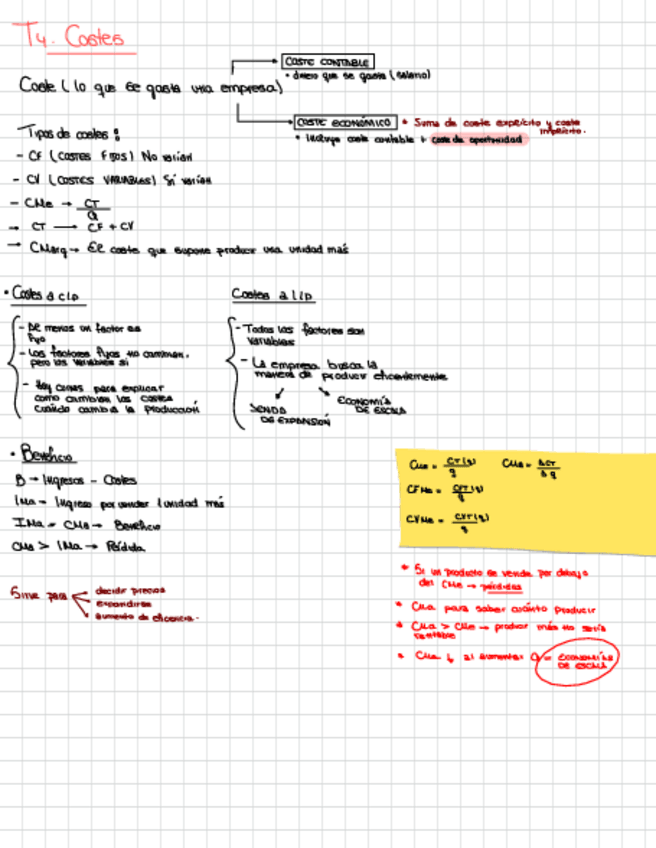 T4. Costes
COSTE CONTABLE
• dinero que se gasta (salario)
Coste (lo que se gasta una empresa)
COSTE ECONÓMICO • Suma de coste explícito y coste implícito.
• Incluye coste contable + coste de oportunidad
Tipos de costes:
- CF (COSTES FIJOS) No varían
- CV (COSTES VARIABLES) Sí varían
- CMe → CT/Q
→ CT → CF + CV
→ CMarg → El coste que supone producir una unidad más
• Costes a c/p
- Al menos un factor es
fijo
- Los factores fijos no cambian,
pero los variables sí
- Hay curvas para explicar
como cambian los costes
cuando cambia la producción
Costes a l/p
- Todos los factores son
variables
- La empresa busca la
manera de producir eficientemente
SENDA
DE EXPANSIÓN
ECONOMÍA
DE ESCALA
• Beneficio
B → Ingresos - Costes
IMa → Ingreso por vender 1 unidad más
IMa = CMa → Beneficio
CMa > IMa → Pérdida
Sirve para
decidir precios
expandirse
aumento de eficiencia.
CMe = CT(q)/q CMa = ΔCT/Δq
CFMe = CFT(q)/q
CVMe = CVT(q)/q
• Si un producto se vende por debajo
del CMe → pérdidas
• CMa para saber cuánto producir
• CMa > CMe → producir más no sería
rentable
• ↓ al aumentar Q = ECONOMÍAS
DE ESCALA